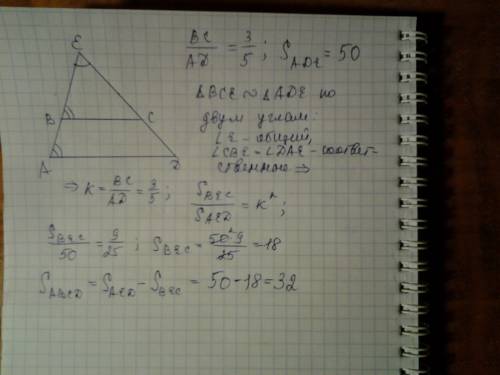 E
B C
A D
BC/AD = 3/5 ; S_ADE = 50
ΔBCE ∾ ΔADE по
двум углам:
∠E - общий,
∠CBE = ∠DAE - соответ-
ственное ⇒
⇒ K = BC/AD = 3/5 ; S_BEC/S_AED = K² ;
S_BEC/50 = 9/25 ; S_BEC = 50² 9/25 = 18
S_ABCD = S_AED - S_BEC = 50 - 18 = 32